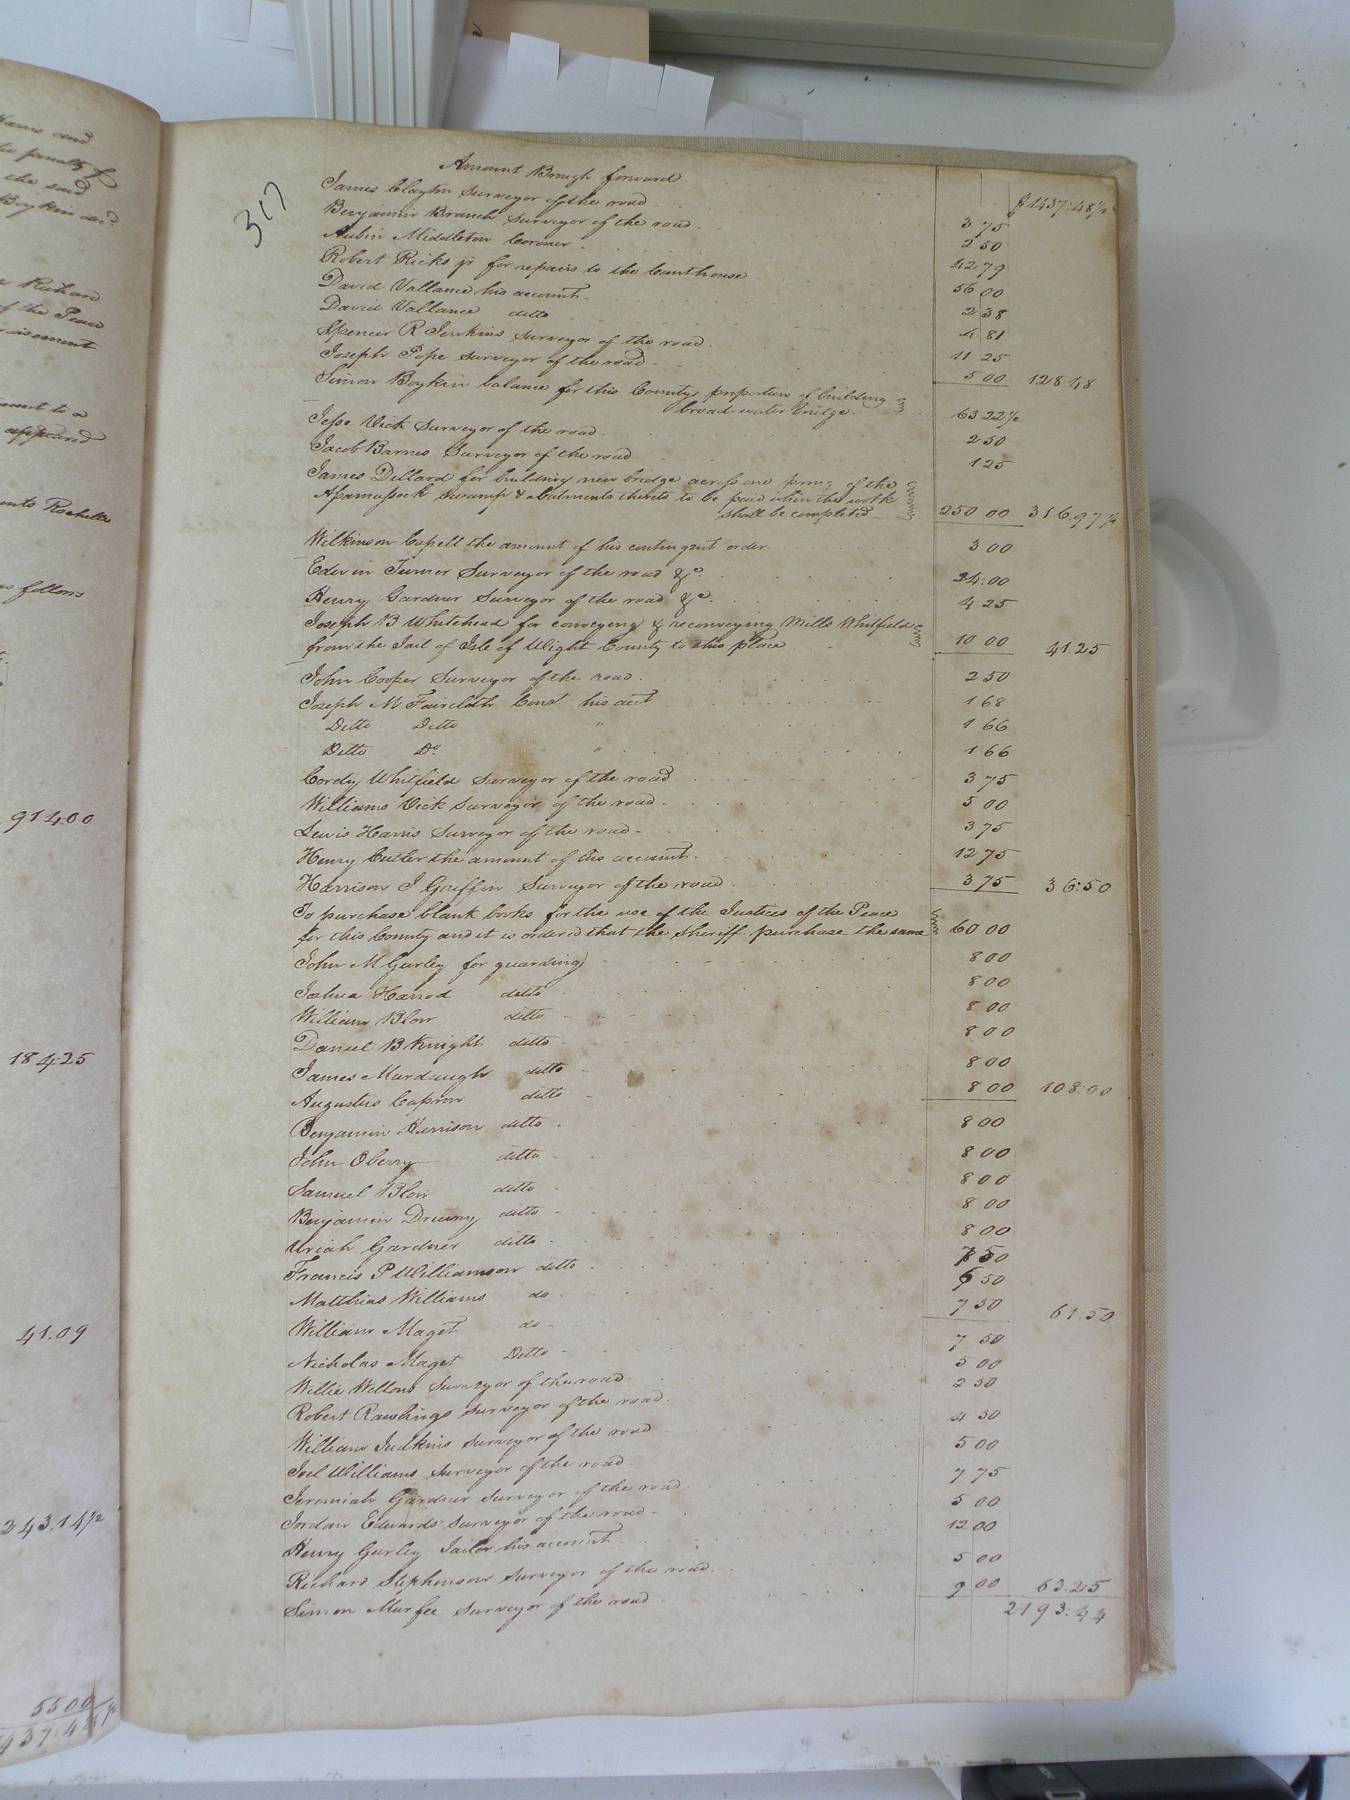 Hams and
the penalty of
the said
Boykin decd.
Richard
of the Peace
amount to a
appeared
Rochelle
as follows
914.00
184.25
41.09
243.14½
5500
317
Amount Brough forward $1437:48½
James Clayton Surveyor of the road 3 75
Benjamin Branch Surveyor of the road 2 50
Aubin Middleton Coroner 42 79
Robert Ricks jr for repairs to the Courthouse 56 00
David Vallance his account 2 38
David Vallance ditto 4 81
Spencer R Jenkins Surveyor of the road 11 25
Joseph Pope Surveyor of the road 5 00 128 48
Simon Boykin balance for this Countys proportion of building
broad water bridge 63 22½
Jesse Vick Surveyor of the road 2 50
Jacob Barnes Surveyor of the road 1 25
James Dillard for building new bridge across one prong of the
Apamussock Swamp & abutments thereto to be paid when the work
shall be completed 250 00 316.97½
Wilkinson Capell the amount of his contingent order 3 00
Edwin Turner Surveyor of the road &c. 24:00
Henry Gardner Surveyor of the road &c. 4 25
Joseph B Whitehead for conveying & reconveying Mills Whitfield
from the Jail of Isle of Wight County to this place 10 00 41.25
John Cooper Surveyor of the road 2 50
Joseph M Faircloth Const his acct 1 68
Ditto Ditto " 1 66
Ditto Do " 1 66
Cordy Whitfield Surveyor of the road 3 75
Williams Vick Surveyor of the road 5 00
Lewis Harris Surveyor of the road 3 75
Henry Cutler the amount of his account 12 75
Harrison J Griffin Surveyor of the road 3 75 36:50
To purchase blank books for the use of the Justices of the Peace
for this County and it is ordered that the Sheriff purchase the same 60 00
John M Gurley for guarding 8 00
Joshua Harrod ditto 8 00
William Blow ditto 8 00
Daniel B Knight ditto 8 00
James Murdaugh ditto 8 00
Augustus Capron ditto 8 00 108:00
Benjamin Harrison ditto 8 00
John Oberry ditto 8 00
Samuel Blow ditto 8 00
Benjamin Drewry ditto 8 00
Uriah Gardner ditto 8 00
Francis P Williamson ditto 7 50
Matthias Williams do 6 50
William Maget do 7 50 61.50
Nicholas Maget Ditto 7 50
Willie Wellons Surveyor of the road 5 00
Robert Rawlings Surveyor of the road 2 50
William Judkins Surveyor of the road 4 50
Joel Williams Surveyor of the road 5 00
Jeremiah Gardner Surveyor of the road 7 75
Jordan Edwards Surveyor of the road 5 00
Henry Gurley Jailor his account 12 00
Richard Stephenson Surveyor of the road 5 00
Simon Murfee Surveyor of the road 9 00 63.25
2193:44